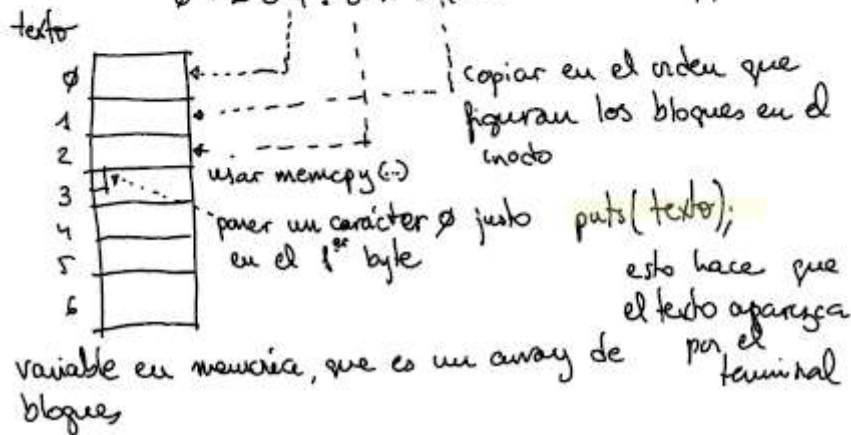 texto
0
1
2
3
4
5
6
copiar en el orden que
figuran los bloques en el
inodo
usar memcpy(..)
poner un carácter ø justo
en el 1er byte
puts(texto);
esto hace que
el texto aparezca
por el
terminal
variable en memoria, que es un array de
bloques